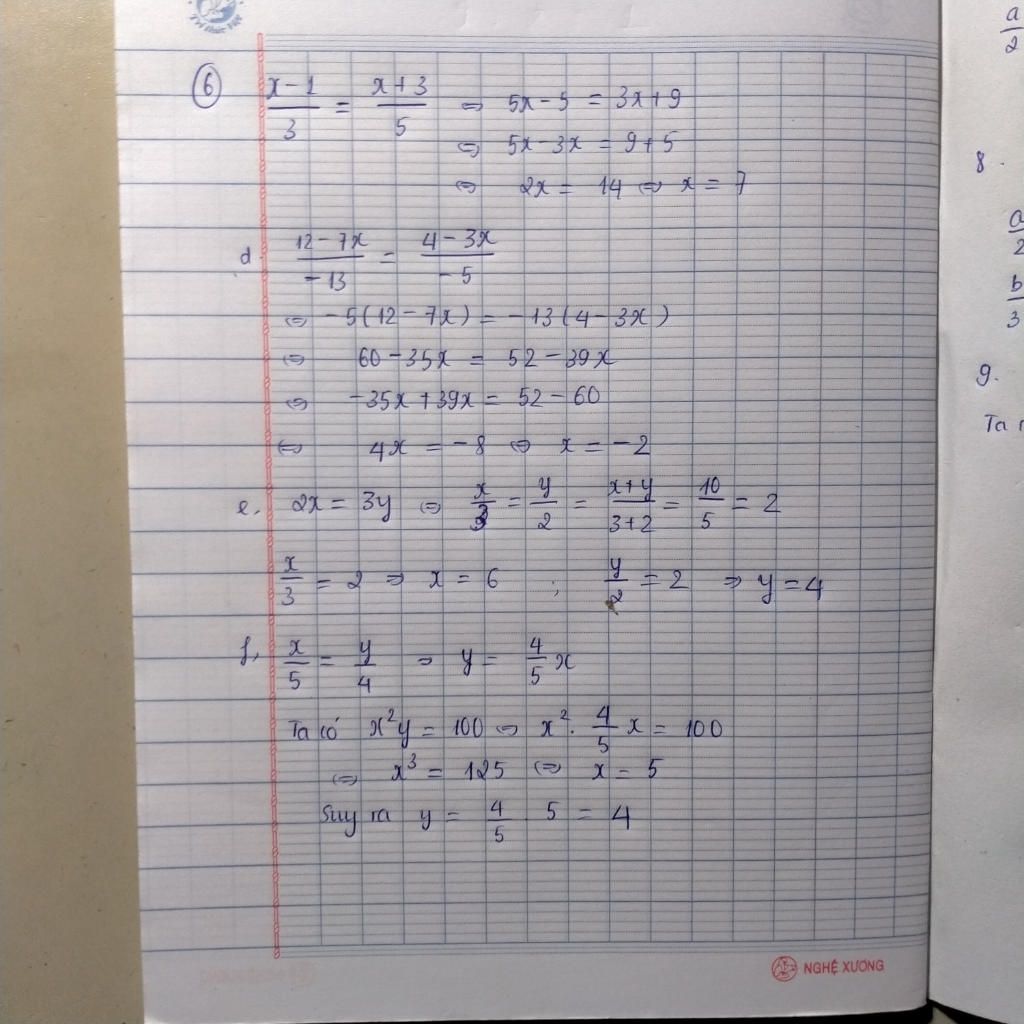 ⑥ (x-1)/3 = (x+3)/5 ⇔ 5x-5 = 3x+9
⇔ 5x-3x = 9+5
⇔ 2x = 14 ⇔ x = 7
d (12-7x)/(-13) = (4-3x)/(-5)
⇔ -5(12-7x) = -13(4-3x)
⇔ 60-35x = 52-39x
⇔ -35x+39x = 52-60
⇔ 4x = -8 ⇔ x = -2
e, 2x = 3y ⇔ x/3 = y/2 = (x+y)/(3+2) = 10/5 = 2
x/3 = 2 ⇒ x = 6 ; y/2 = 2 ⇒ y = 4
f, x/5 = y/4 ⇒ y = 4/5 x
Ta có x²y = 100 ⇔ x². 4/5 x = 100
⇔ x³ = 125 ⇔ x = 5
Suy ra y = 4/5 . 5 = 4
NGHỆ XƯƠNG
a/2
8.
a/2
b/3
9.
Ta